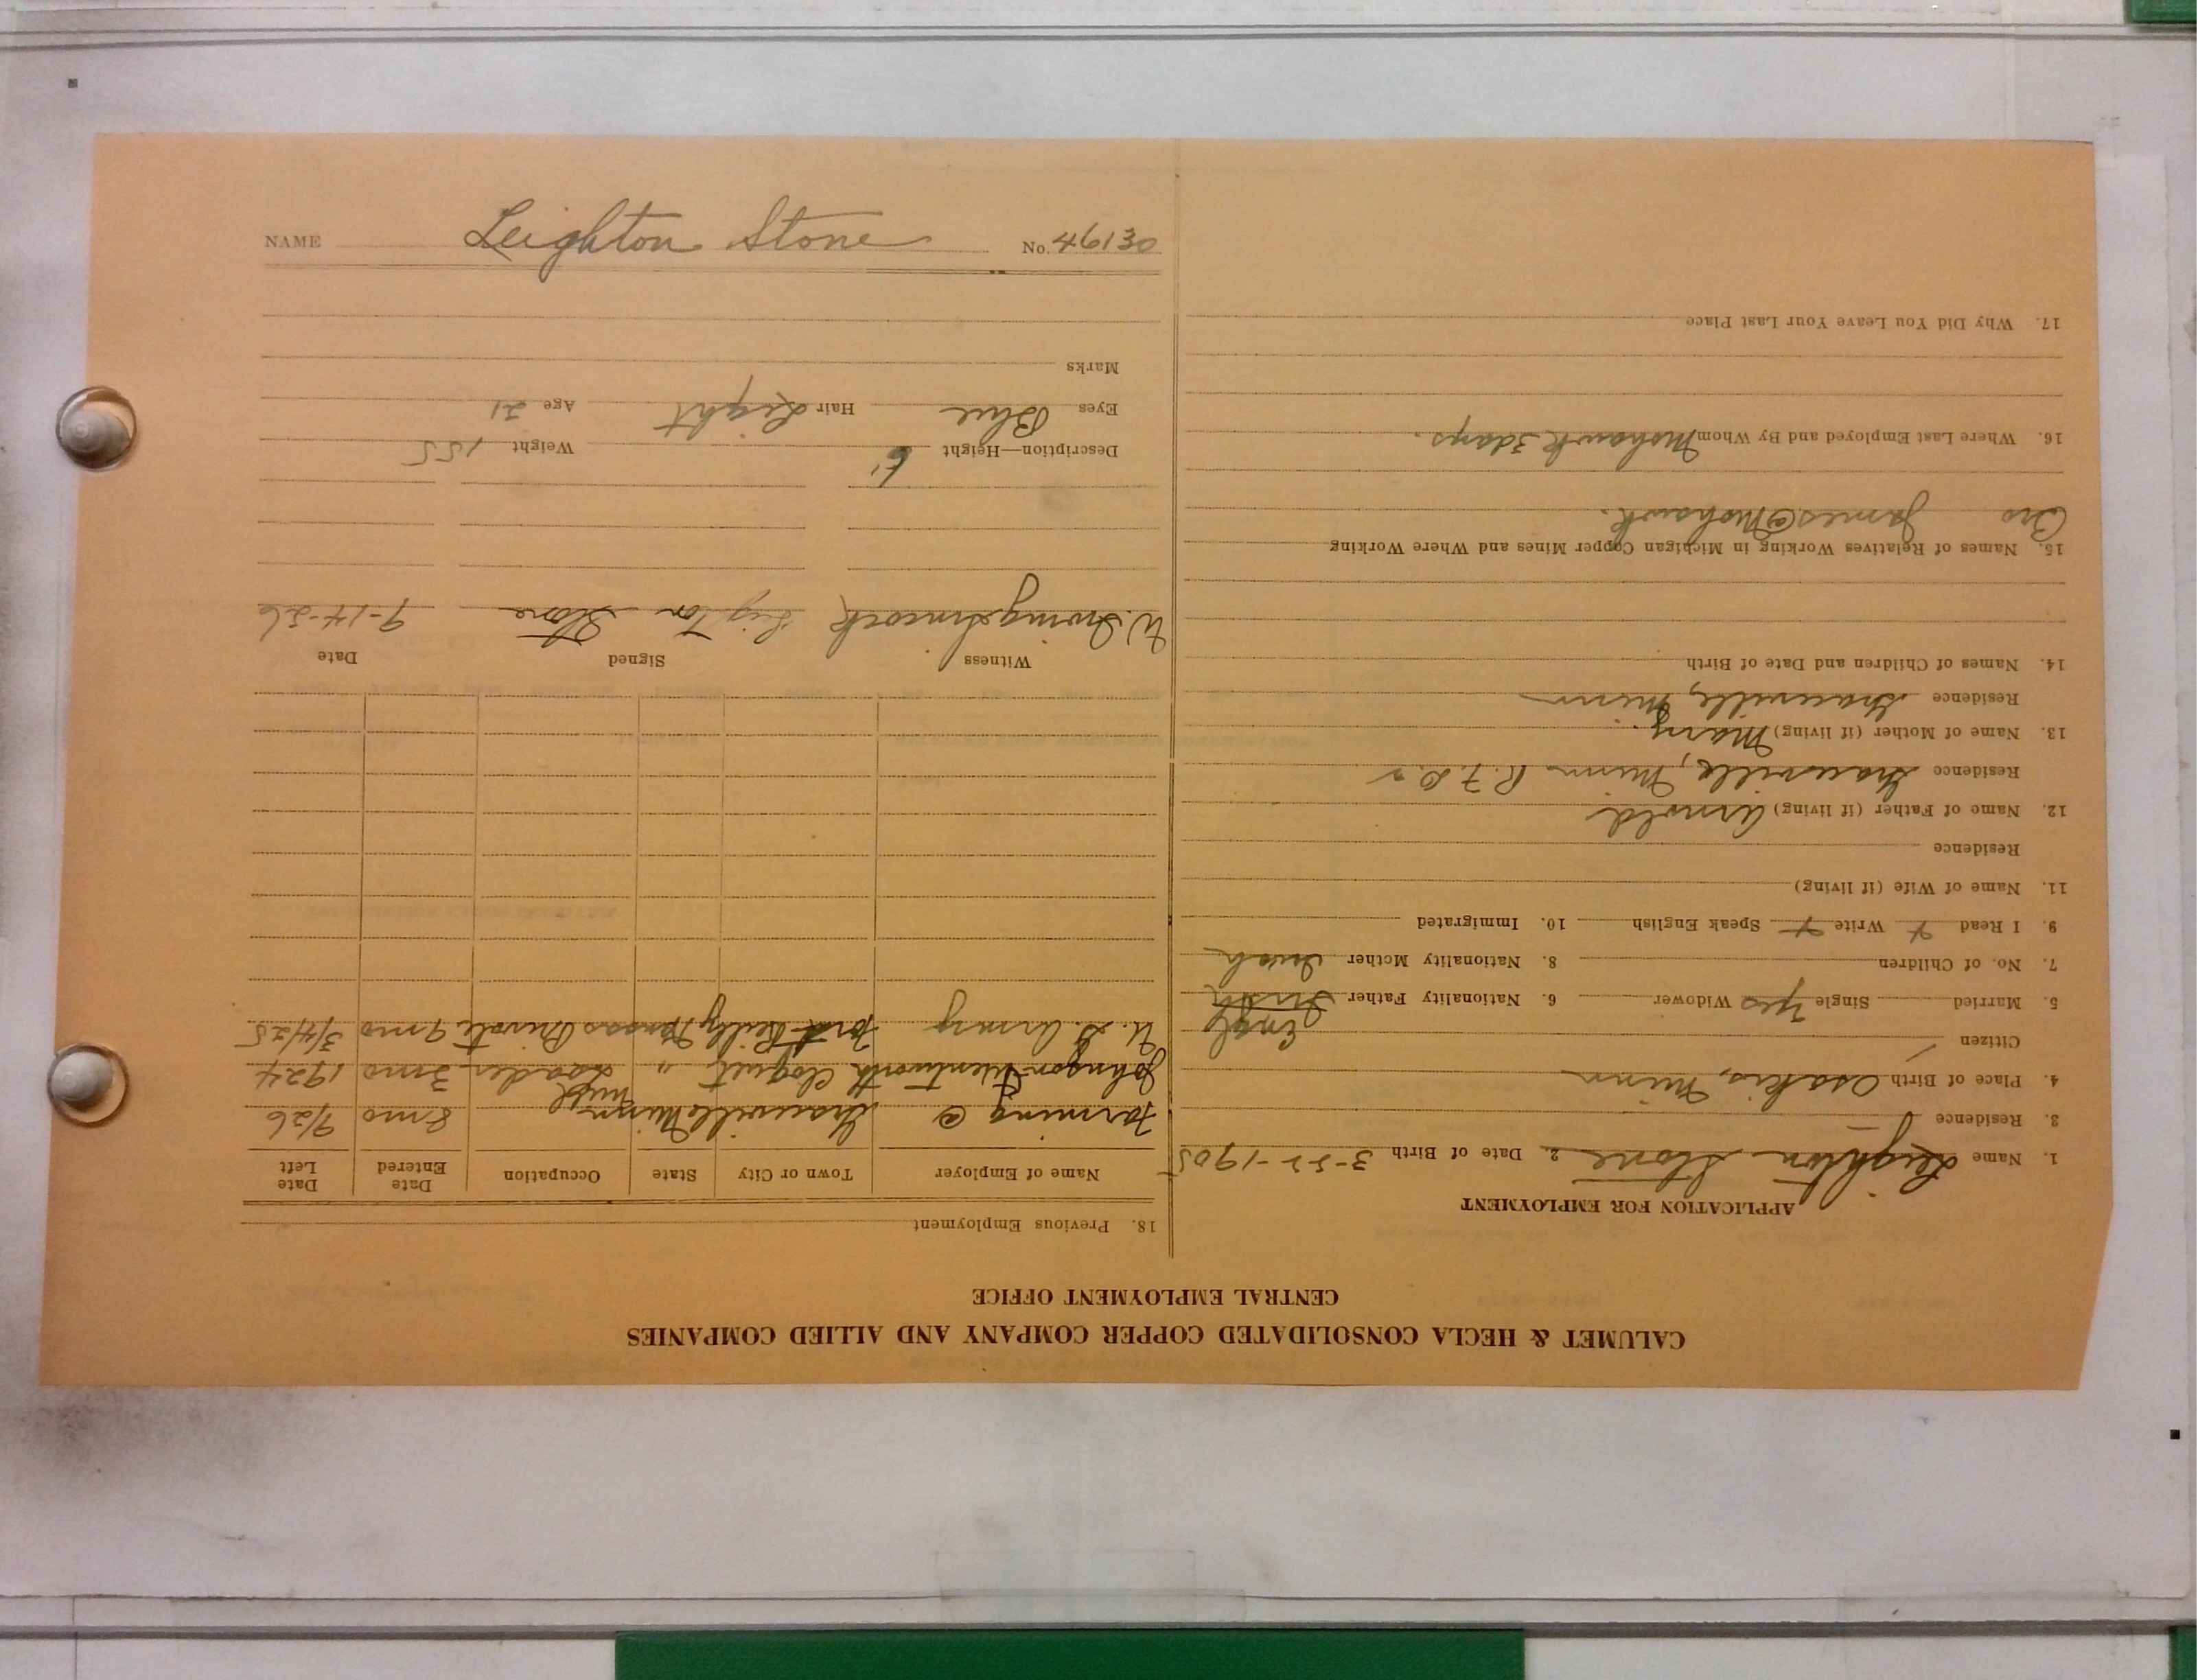 NAME Leighton Stone No. 46130
CALUMET & HECLA CONSOLIDATED COPPER COMPANY AND ALLIED COMPANIES
CENTRAL EMPLOYMENT OFFICE
APPLICATION FOR EMPLOYMENT
1. Name Leighton Stone 2. Date of Birth 3-22-1905
3. Residence
4. Place of Birth Osakis, Minn
Citizen
5. Married Single Yes Widower 6. Nationality Father Engl Irish
7. No. of Children 8. Nationality Mother Irish
9. I Read Write Speak English 10. Immigrated
11. Name of Wife (if living)
Residence
12. Name of Father (if living) Arnold
Residence Graceville, Minn R.F.D.
13. Name of Mother (if living) Mary
Residence Graceville, Minn
14. Names of Children and Date of Birth
15. Names of Relatives Working in Michigan Copper Mines and Where Working
Bro James @ Mohawk.
16. Where Last Employed and By Whom Mohawk 3 days.
17. Why Did You Leave Your Last Place
18. Previous Employment
Name of Employer Town or City State Occupation Date Entered Date Left
Farming @ Graceville Minn 8 mo 9/26
Johnson Wentworth Cloquet " Mill Loader 3 mo 1924
U.S. Army Fort Reily Kansas Private 9 mo 3/4/25
Witness Signed Date
W. Irving Leighton Stone 9-14-26
Description—Height 6' Weight 155
Eyes Blue Hair Light Age 21
Marks